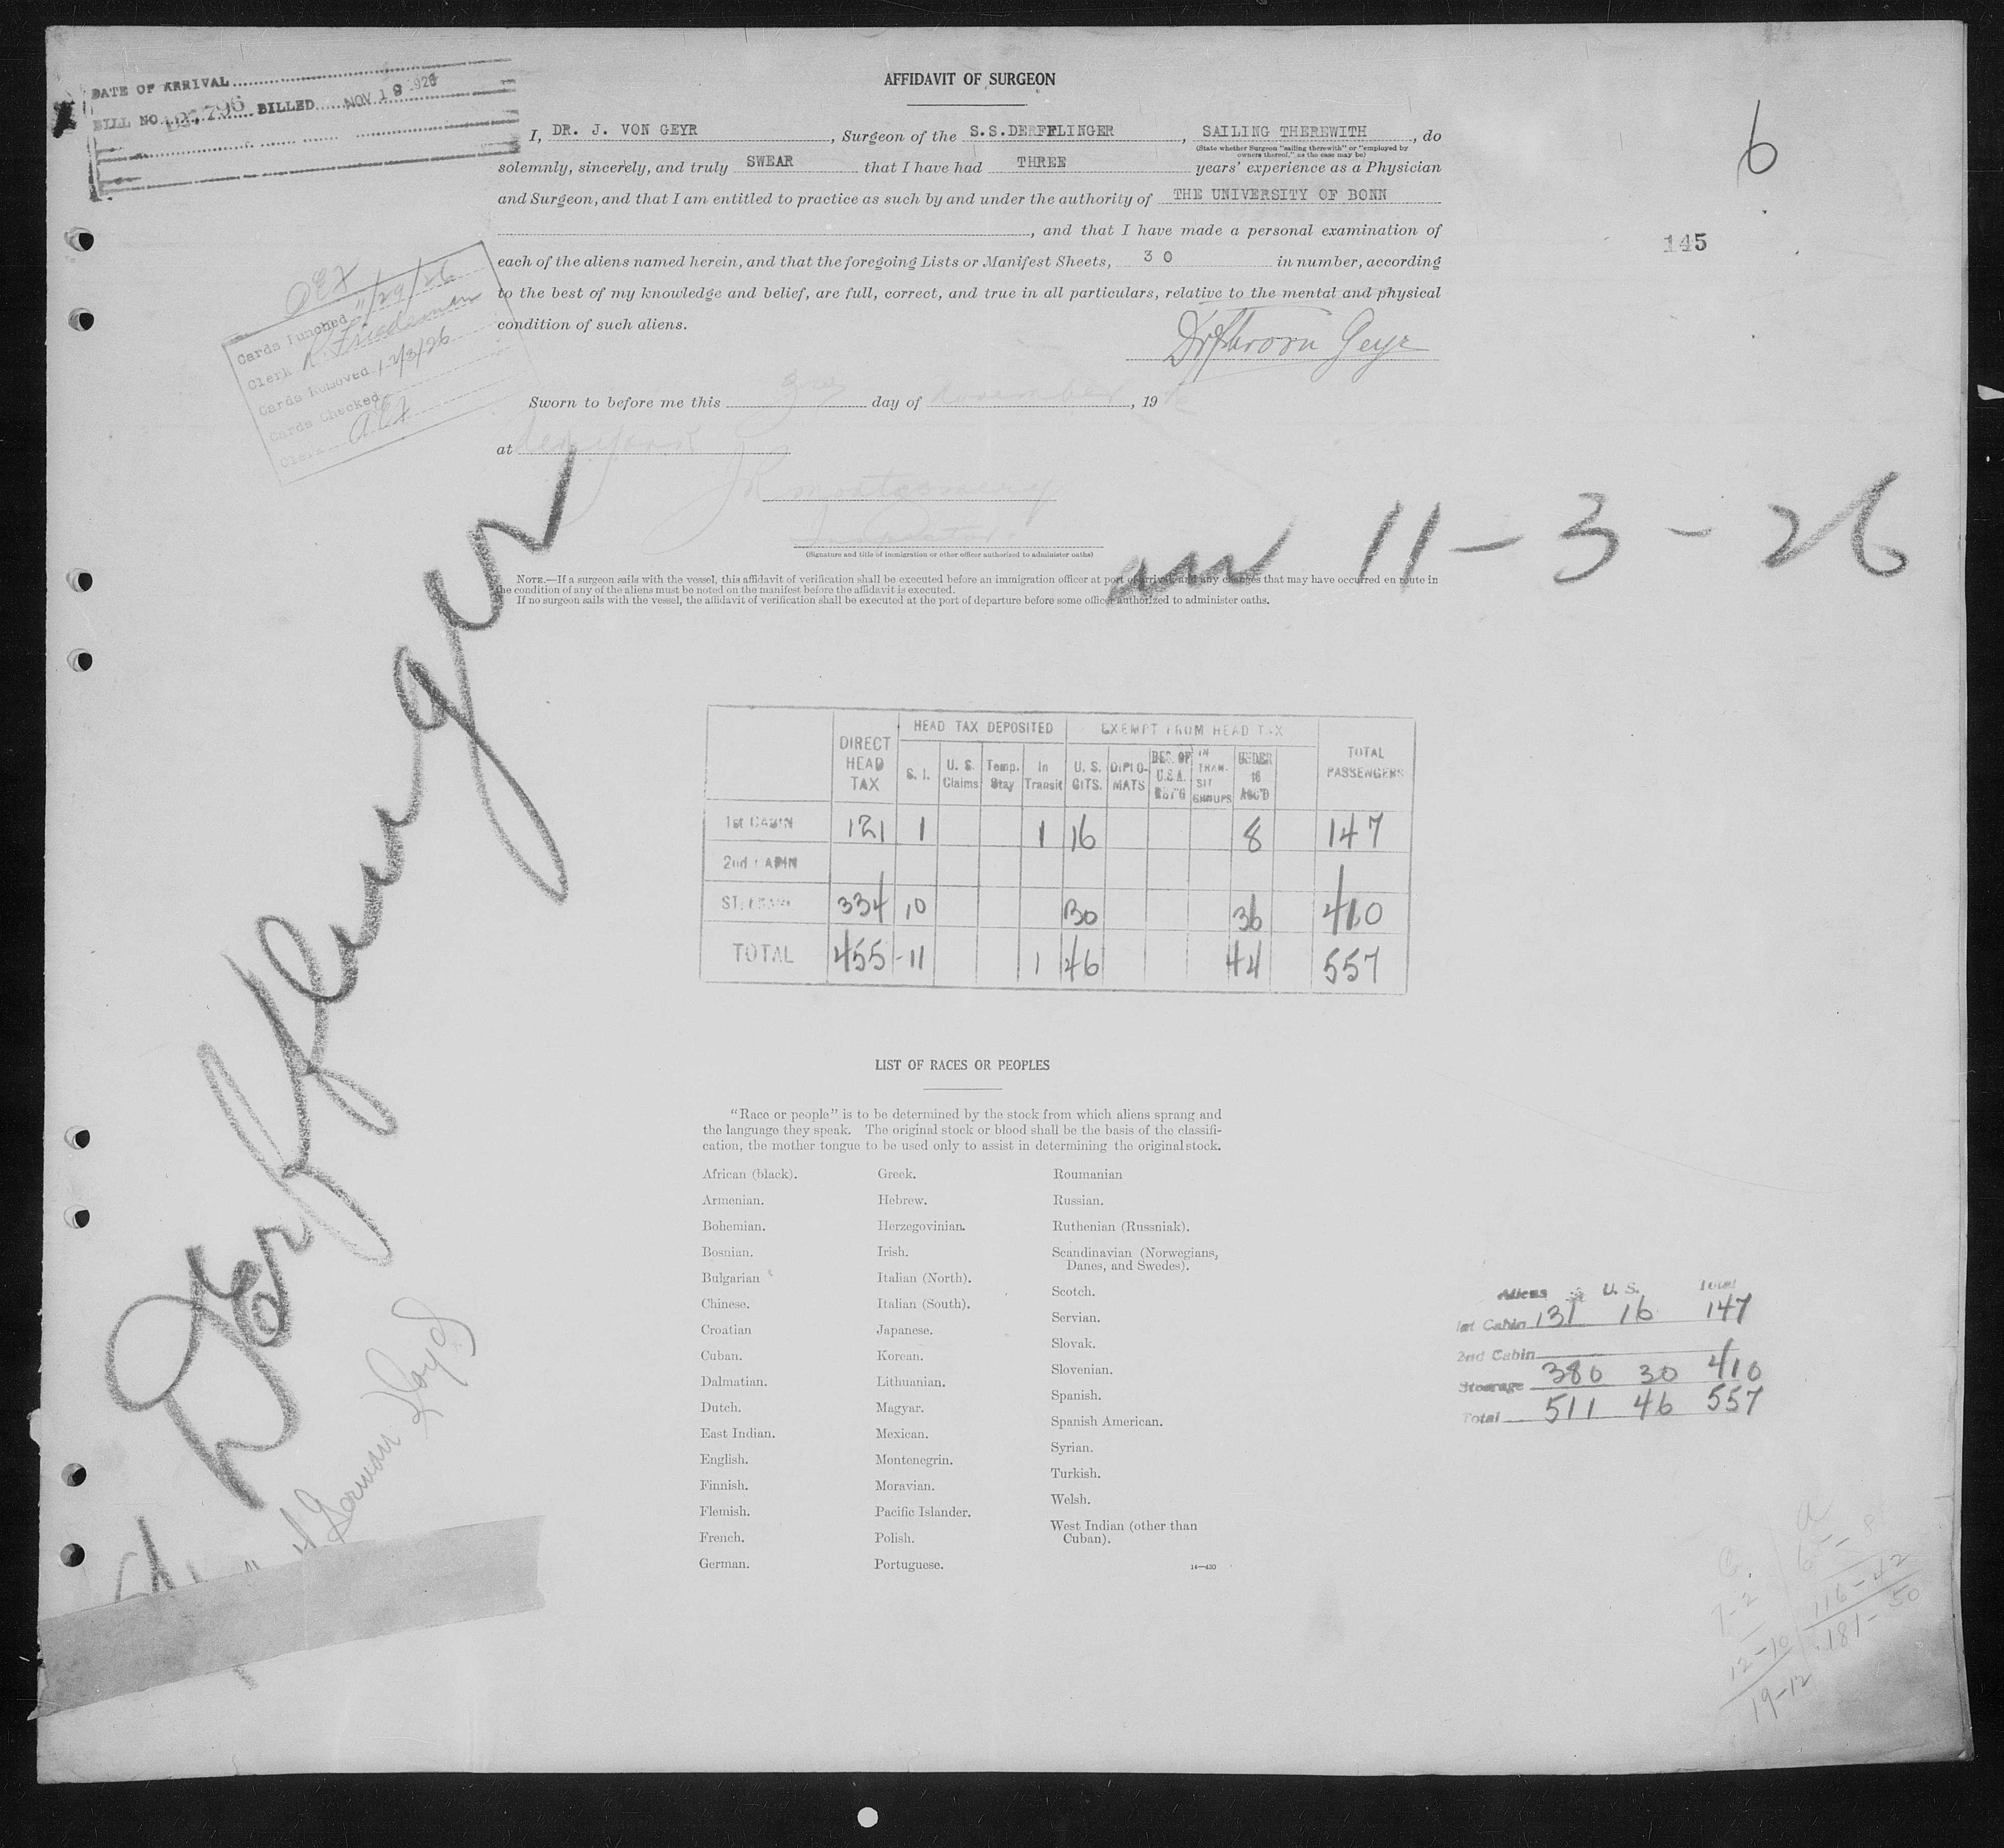 DATE OF ARRIVAL
BILL NO. BILLED NOV 19 1926
AFFIDAVIT OF SURGEON
I, DR. J. VON GEYR, Surgeon of the S.S.DERFFLINGER, SAILING THEREWITH, do
(State whether Surgeon "sailing therewith" or "employed by
owners thereof," as the case may be)
solemnly, sincerely, and truly SWEAR that I have had THREE years' experience as a Physician
and Surgeon, and that I am entitled to practice as such by and under the authority of THE UNIVERSITY OF BONN
, and that I have made a personal examination of
each of the aliens named herein, and that the foregoing Lists or Manifest Sheets, 30 in number, according
to the best of my knowledge and belief, are full, correct, and true in all particulars, relative to the mental and physical
condition of such aliens.
Geyr
6
145
Cards Punched 11/29/26
Clerk R. Friedman
Cards Removed 12/3/26
Cards Checked
Clerk
Sworn to before me this 3rd day of November, 19
at New York
JR Montgomery
Inspector
(Signature and title of immigration or other officer authorized to administer oaths)
11-3-26
NOTE.—If a surgeon sails with the vessel, this affidavit of verification shall be executed before an immigration officer at port of arrival, and any changes that may have occurred en route in
the condition of any of the aliens must be noted on the manifest before the affidavit is executed.
If no surgeon sails with the vessel, the affidavit of verification shall be executed at the port of departure before some officer authorized to administer oaths.
Derfflinger
German Lloyd
HEAD TAX DEPOSITED EXEMPT FROM HEAD TAX
DIRECT HEAD TAX S. I. U. S. Claims Temp. Stay In Transit U. S. CITS. DIPLO-MATS RES. OF U.S.A. RET'G IN TRAN-SIT GROUPS UNDER 16 ACC'D TOTAL PASSENGERS
1st CABIN 121 1 1 16 8 147
2nd CABIN
STEERAGE 334 10 30 36 410
TOTAL 455 - 11 1 46 44 557
LIST OF RACES OR PEOPLES
"Race or people" is to be determined by the stock from which aliens sprang and
the language they speak. The original stock or blood shall be the basis of the classifi-
cation, the mother tongue to be used only to assist in determining the original stock.
African (black).
Armenian.
Bohemian.
Bosnian.
Bulgarian
Chinese.
Croatian
Cuban.
Dalmatian.
Dutch.
East Indian.
English.
Finnish.
Flemish.
French.
German.
Greek.
Hebrew.
Herzegovinian.
Irish.
Italian (North).
Italian (South).
Japanese.
Korean.
Lithuanian.
Magyar.
Mexican.
Montenegrin.
Moravian.
Pacific Islander.
Polish.
Portuguese.
Roumanian
Russian.
Ruthenian (Russniak).
Scandinavian (Norwegians,
Danes, and Swedes).
Scotch.
Servian.
Slovak.
Slovenian.
Spanish.
Spanish American.
Syrian.
Turkish.
Welsh.
West Indian (other than
Cuban).
14—430
Aliens U. S. Total
1st Cabin 131 16 147
2nd Cabin
Steerage 380 30 410
Total 511 46 557
C.
7-2
12-10
19-12
a
6 - 8
116-42
181-50